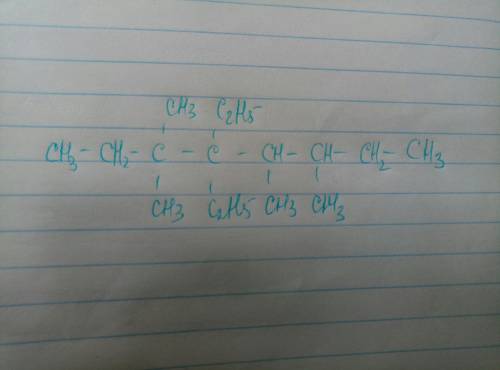 CH3 C2H5
CH3 - CH2 - C - C - CH - CH - CH2 - CH3
CH3 C2H5 CH3 CH3